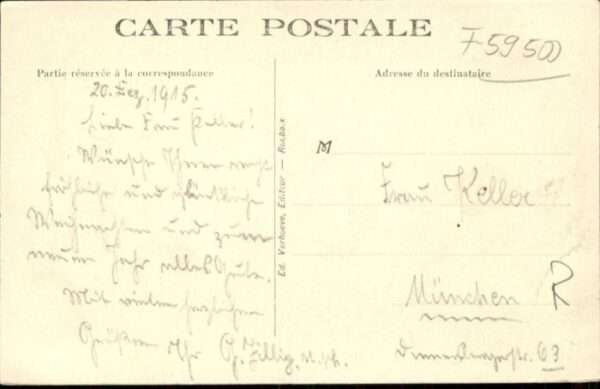 CARTE POSTALE
F 59 500
Partie réservée à la correspondance
Adresse du destinataire
20. Dez. 1915.
Liebe Frau Keller!
Wünsche Ihnen recht
fröhliche und glückliche
Weihnachten und zum
neuen Jahr alles Gute.
Mit vielen herzlichen
Grüßen Ihr G. Zillig
Ed. Verhoeve, Editeur — Roubaix
M
Frau Keller
München
R
63